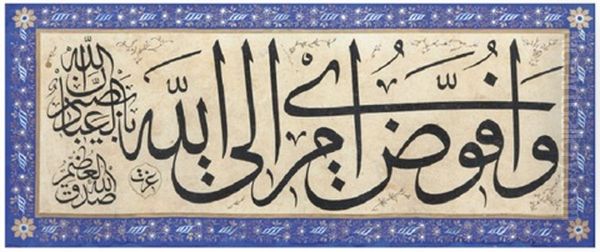 وَأُفَوِّضُ أَمْرِي إِلَى اللَّهِ
إِنَّ اللَّهَ بَصِيرٌ بِالْعِبَادِ
صدق الله العظيم